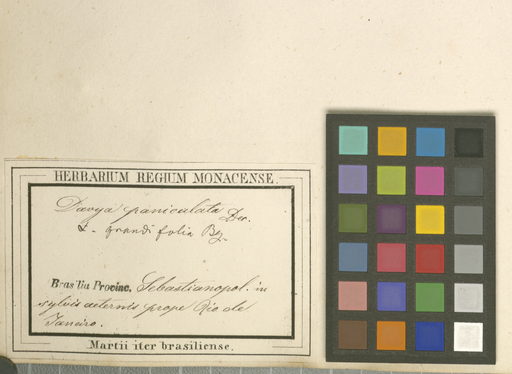 HERBARIUM REGIUM MONACENSE.
Davya paniculata Dec.
α. grandifolia Bg.
Brasilia Provinc. Sebastianopol. in
sylvis aeternis prope Rio de
Janeiro.
Martii iter brasiliense.